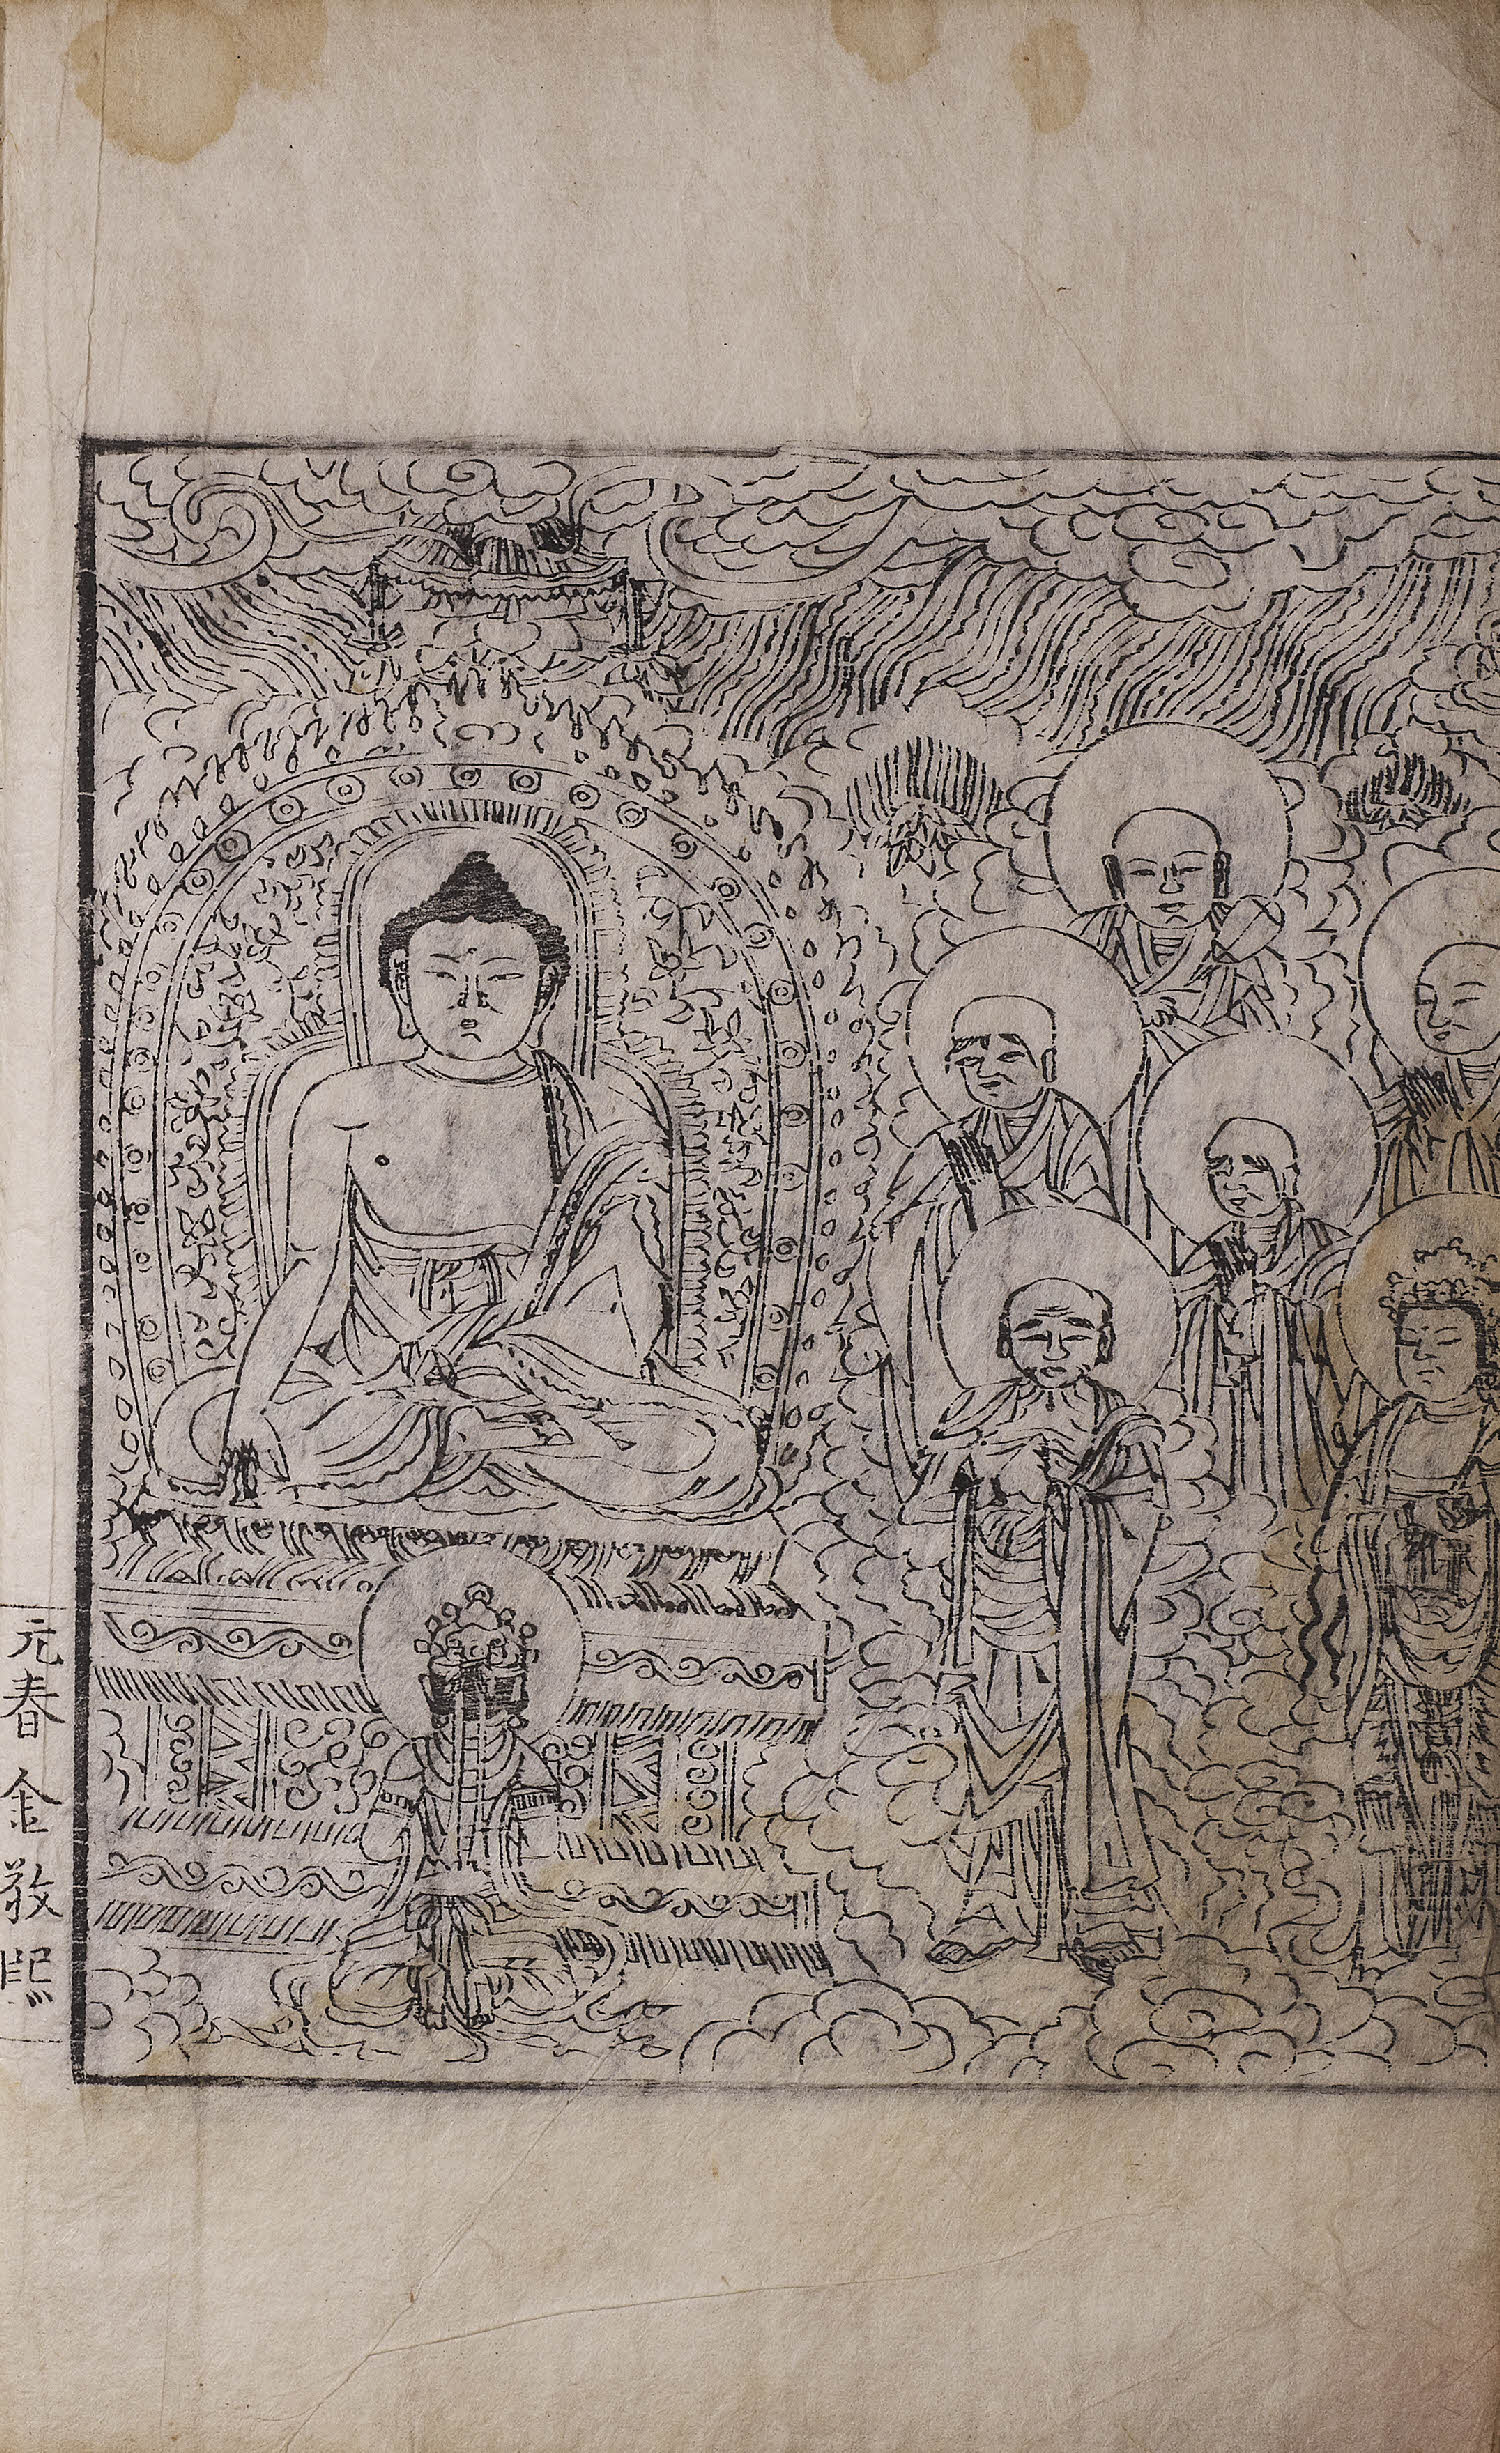 元春 金敬熙